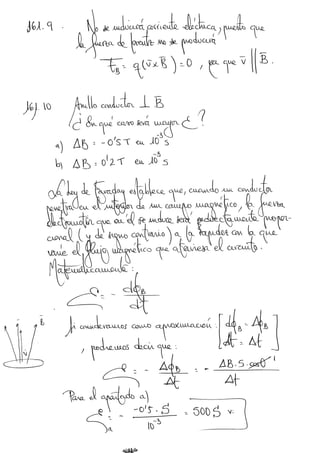 161.9. No se inducirá corriente eléctrica, puesto que
la fuerza de Lorentz no se producirá
F_B = q(v×B) = 0, ya que v ∥ B.
161.10 Anillo conductor ⊥ B
¿En qué caso será mayor ε?
a) ΔB = -0'5 T en 10⁻³ s
b) ΔB = 0'2 T en 10⁻³ s
La Ley de Faraday establece que, cuando un conductor
penetra en el interior de un campo magnético, la fuerza
electromotriz que en él se induce será directamente propor-
cional (y de signo contrario) a la rapidez con la que
varíe el flujo magnético que atraviesa el circuito.
Matemáticamente:
ε = - dϕ_B / dt
Si consideramos como aproximación: [dϕ_B ≈ Δϕ_B
dt ≈ Δt]
, podremos decir que:
ε = - Δϕ_B / Δt = - ΔB·S·cos0° ¹ / Δt
Para el apartado a)
ε_a = - -0'5·S / 10⁻³ = 500 S v.
B
v